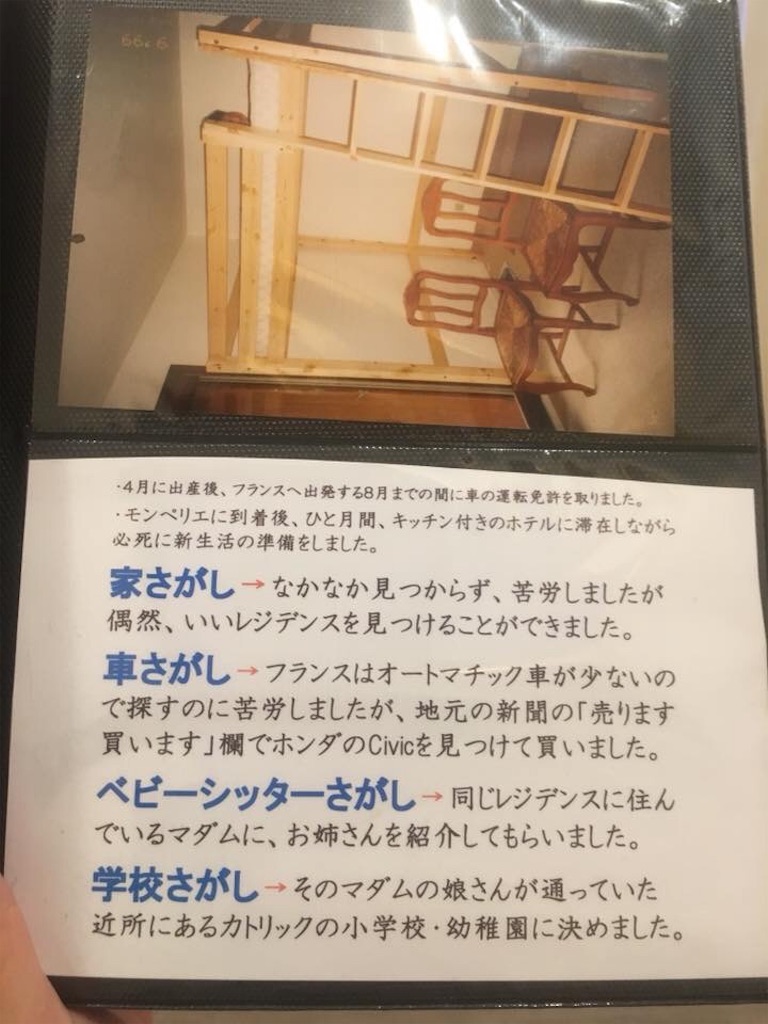 ・4月に出産後、フランスへ出発する8月までの間に車の運転免許を取りました。
・モンペリエに到着後、ひと月間、キッチン付きのホテルに滞在しながら
必死に新生活の準備をしました。
家さがし→なかなか見つからず、苦労しましたが
偶然、いいレジデンスを見つけることができました。
車さがし→フランスはオートマチック車が少ないの
で探すのに苦労しましたが、地元の新聞の「売ります
買います」欄でホンダのCivicを見つけて買いました。
ベビーシッターさがし→同じレジデンスに住ん
でいるマダムに、お姉さんを紹介してもらいました。
学校さがし→そのマダムの娘さんが通っていた
近所にあるカトリックの小学校・幼稚園に決めました。